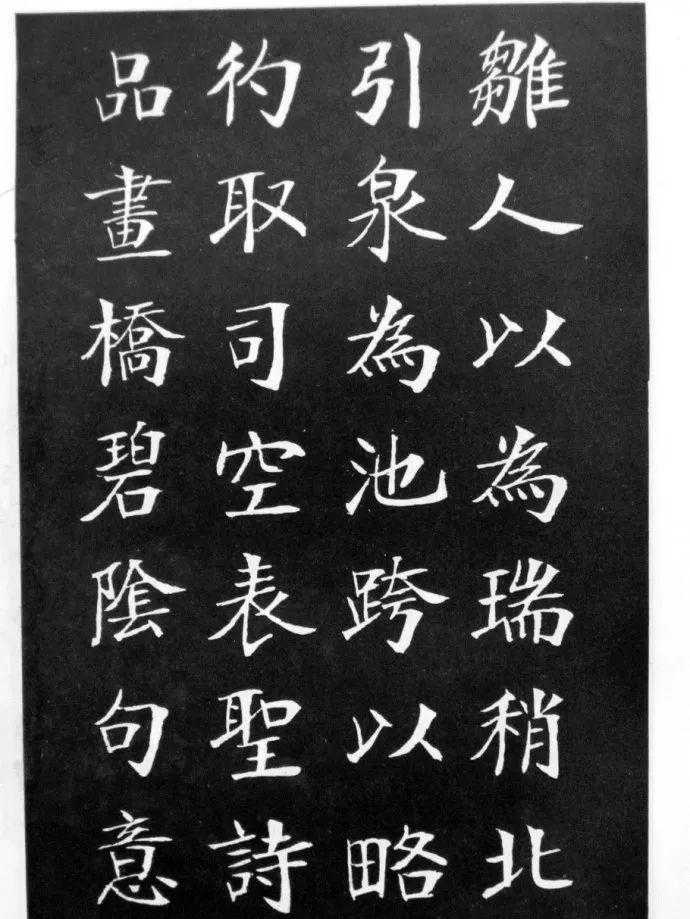 雛人以為瑞稍北
引泉為池跨以略
彴取司空表聖詩
品畫橋碧陰句意